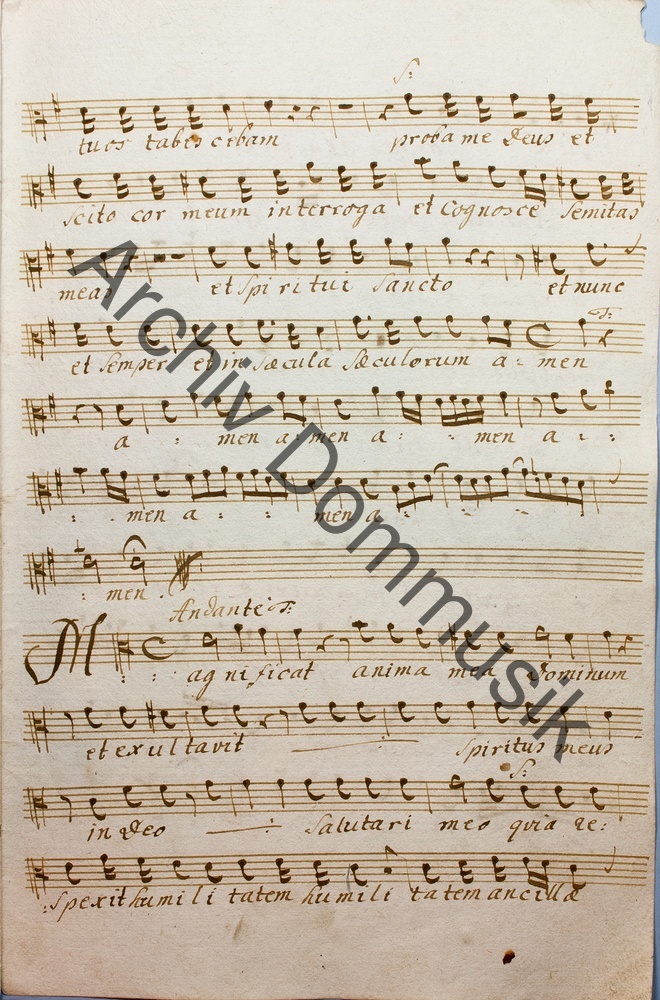 S:
tuos tabescebam proba me Deus et
scito cor meum interroga et Cognosce Semitas
meas et Spiritui Sancto et nunc
et Semper et in Sæcula Sæculorum a- men
T:
a : men a: men a : : men a : :
: . men a : : men a : . .
: men .
Andante T:
M : : agnificat anima mea Dominum
et exultavit spiritus meus
in Deo Salutari meo quia re:
S:
:spexit humilitatem humilitatem ancillæ
Archiv Dommusik